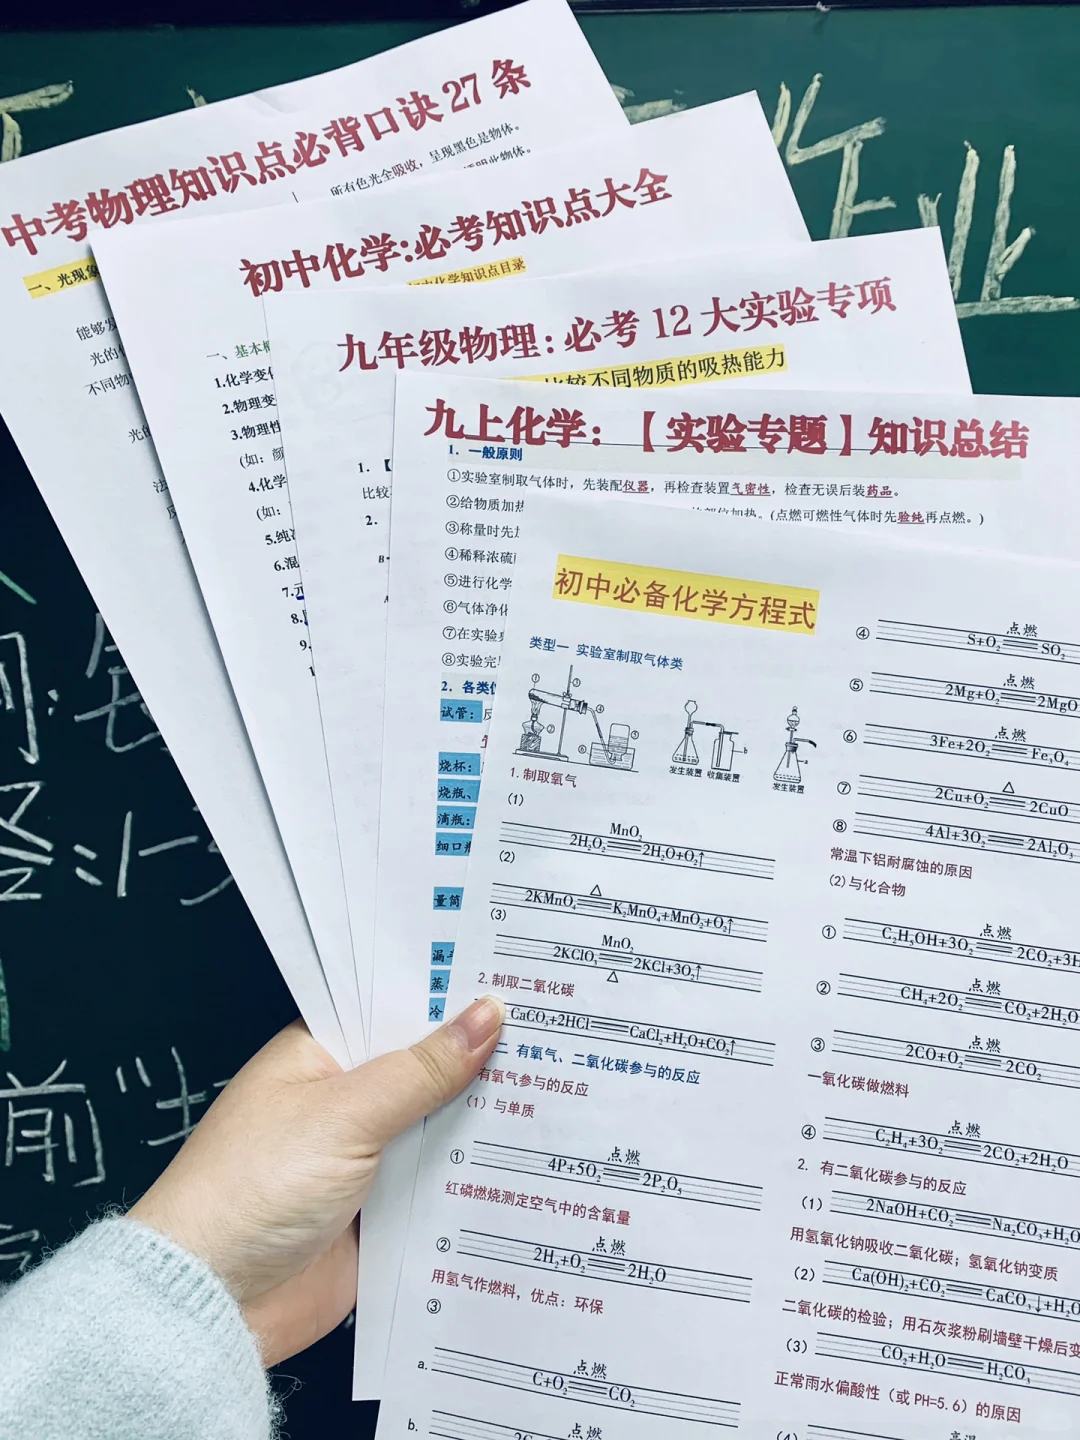 中考物理知识点必背口诀27条
所有色光全吸收，呈现黑色是物体。
一、光现象
能够发
光的
不同物
光的
法
初中化学:必考知识点大全
初中化学知识点目录
一、基本概
1.化学变化
2.物理变
3.物理性
(如：颜
4.化学
(如：
5.纯净
6.混
7.元
8.
9.
九年级物理：必考12大实验专项
比较不同物质的吸热能力
1.【
比较
2.
B
九上化学：【实验专题】知识总结
1. 一般原则
①实验室制取气体时，先装配仪器，再检查装置气密性，检查无误后装药品。
②给物质加热
部位加热。(点燃可燃性气体时先验纯再点燃。)
③称量时先
④稀释浓硫
⑤进行化学
⑥气体净化
⑦在实验
⑧实验完
2. 各类
试管：
烧杯：
烧瓶、
滴瓶：
细口瓶
量筒
漏斗
蒸
冷
初中必备化学方程式
类型一 实验室制取气体类
① ② ③ ④ ⑤ ⑥
发生装置 收集装置
发生装置
a
b
1.制取氧气
(1)
2H₂O₂ MnO₂ 2H₂O+O₂↑
(2)
2KMnO₄ △ K₂MnO₄+MnO₂+O₂↑
(3)
2KClO₃ MnO₂ △ 2KCl+3O₂↑
2.制取二氧化碳
CaCO₃+2HCl══CaCl₂+H₂O+CO₂↑
二 有氧气、二氧化碳参与的反应
有氧气参与的反应
(1) 与单质
① 4P+5O₂ 点燃 2P₂O₅
红磷燃烧测定空气中的含氧量
② 2H₂+O₂ 点燃 2H₂O
用氢气作燃料，优点：环保
③
a. C+O₂ 点燃 CO₂
b. 点燃
④ S+O₂ 点燃 SO₂
⑤ 2Mg+O₂ 点燃 2MgO
⑥ 3Fe+2O₂ 点燃 Fe₃O₄
⑦ 2Cu+O₂ △ 2CuO
⑧ 4Al+3O₂══2Al₂O₃
常温下铝耐腐蚀的原因
(2)与化合物
① C₂H₅OH+3O₂ 点燃 2CO₂+3H
② CH₄+2O₂ 点燃 CO₂+2H₂O
③ 2CO+O₂ 点燃 2CO₂
一氧化碳做燃料
④ C₂H₄+3O₂ 点燃 2CO₂+2H₂O
2. 有二氧化碳参与的反应
(1) 2NaOH+CO₂══Na₂CO₃+H₂O
用氢氧化钠吸收二氧化碳；氢氧化钠变质
(2) Ca(OH)₂+CO₂══CaCO₃↓+H₂O
二氧化碳的检验；用石灰浆粉刷墙壁干燥后变
(3) CO₂+H₂O══H₂CO₃
正常雨水偏酸性（或PH=5.6）的原因
(4) 高温
作业
前